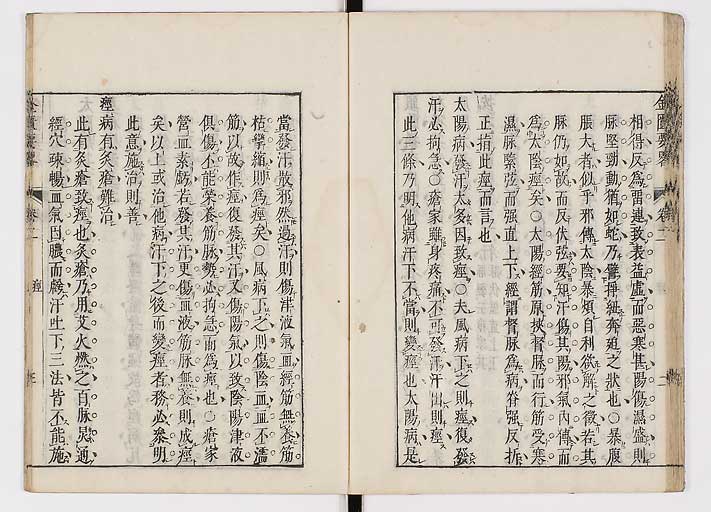 相得反為雷連致表益虛而惡寒甚陽傷濕盛則
脉堅勁動猶如蛇乃譬挣紐奔廹之狀也○暴腹
脹大者似乎邪傳太陰暴煩自利欲解之徵若其
脉仍如故而反伏弦要知汗傷其陽邪氣內傳而
為太陰痙矣○太陽經筋原挾督脉而行筋受寒
濕脉緊弦而强直上下經謂督脉為病脊强反折
正指此痙而言也
太陽病發汗太多因致痙○夫風病下之則痙復發
汗必拘急○瘡家雖身疼痛不可發汗汗出則痙
此三條乃明他病汗下不當則變痙也太陽病是
當發汗散邪然過汗則傷津液氣血經筋無養筋
枯攣縮則為痙矣○風病下之則傷陰血血不濡
筋以故作痙復發其汗又傷陽氣以致陰陽津液
俱傷不能榮養筋脉勢必拘急而為痙也○瘡家
營血素虧若發其汗更傷血液筋脉無養則成痙
矣以上或治他病汗下之後而變痙者務必叅明
此意施治則善
痙病有灸瘡難治
此有灸瘡致痙也灸瘡乃用艾火燃之百脉炅通
經穴疎暢血氣因膿而虧汗吐下三法皆不能施
金匱要畧
卷二
痙